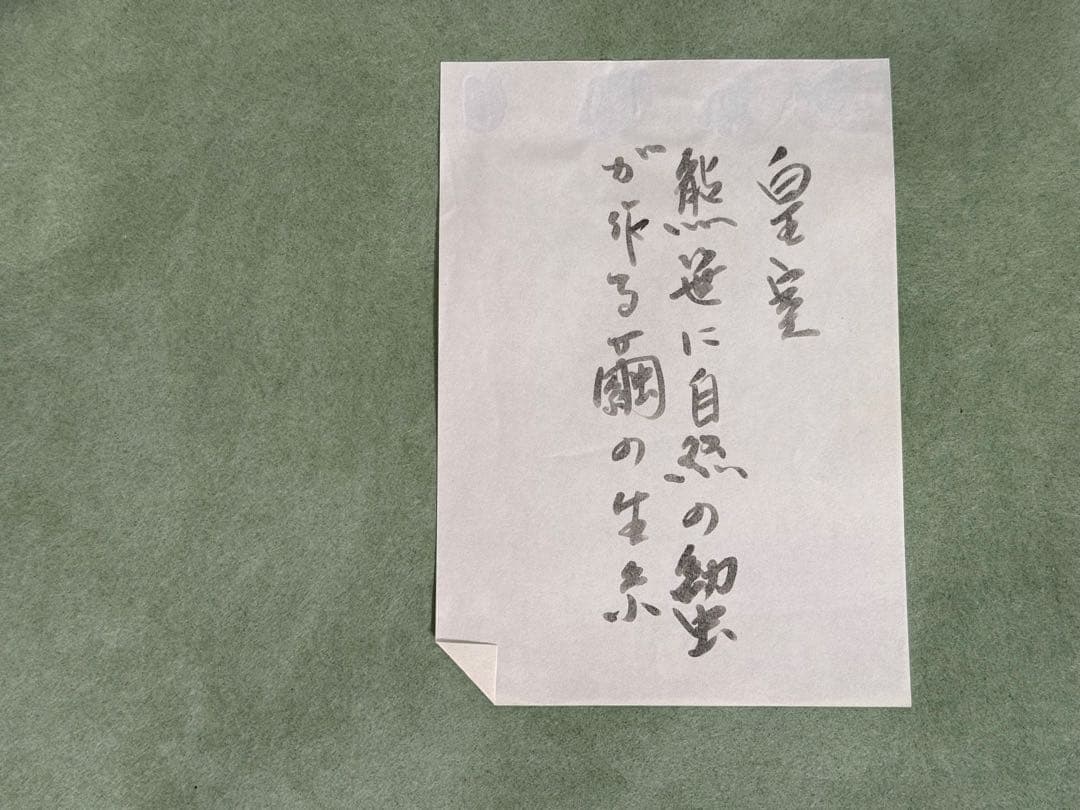 皇室
熊笹に自然の蚕
が作る繭の生糸